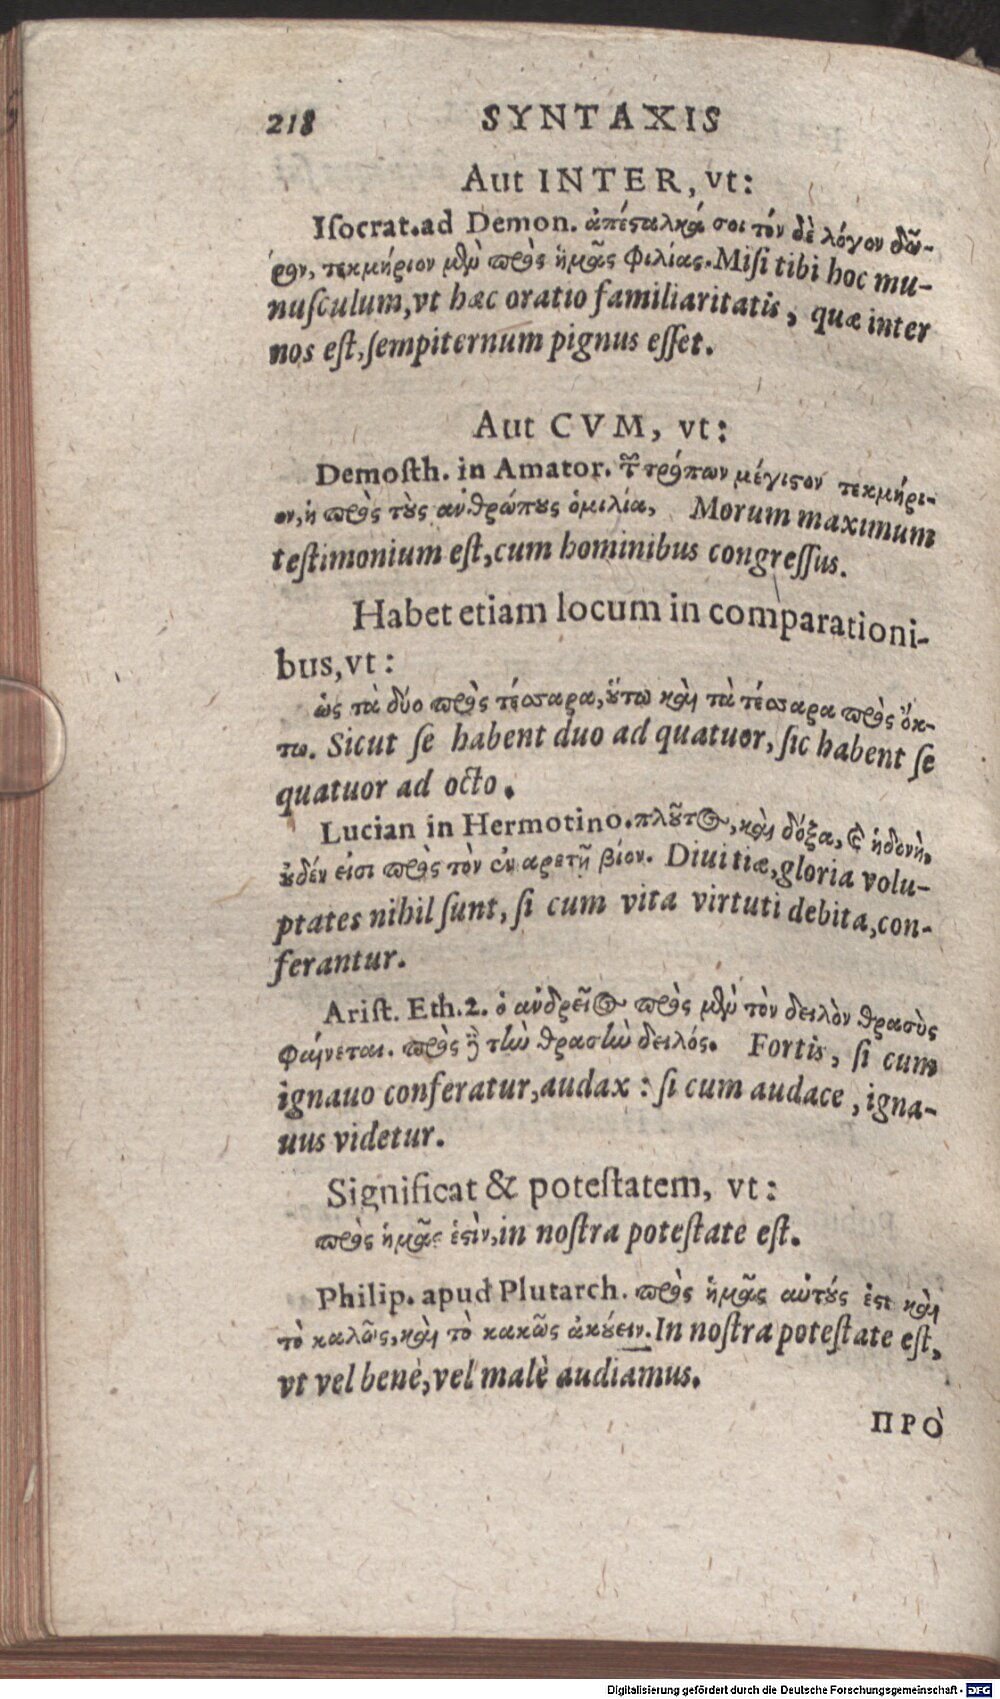 218 SYNTAXIS
Aut INTER, vt:
Iſocrat.ad Demon. ἀπέςαλκά σοι τόν δὲ λόγον δῶ-
ρον, τεκμήριον μὲν πρὸς ἡμᾶς φιλίας. Miſi tibi hoc mu-
nuſculum,vt hæc oratio familiaritatis, quæ inter
nos eſt,ſempiternum pignus eſſet.
Aut CVM, vt:
Demoſth. in Amator. τῶν τρόπων μέγιςον τεκμήρι-
ον,ἡ πρὸς τοὺς ανθρώπους ὁμιλία, Morum maximum
teſtimonium eſt,cum hominibus congreſſus.
Habet etiam locum in comparationi-
bus,vt:
ὡς τὰ δύο πρὸς τέσσαρα,οὕτω καὶ τὰ τέσσαρα πρὸς ὄκ-
τω. Sicut ſe habent duo ad quatuor,ſic habent ſe
quatuor ad octo.
Lucian in Hermotino.πλοῦτος,καὶ δόξα, καὶ ἡδονὴ,
οὐδέν εἰσι πρὸς τὸν ἐν αρετῇ βίον. Diuitiæ,gloria volu-
ptates nihil ſunt, ſi cum vita virtuti debita,con-
ferantur.
Ariſt. Eth.2. ὁ ανδρεῖος πρὸς μὲν τὸν δειλὸν θρασὺς
φαίνεται. πρὸς δὲ τὸν θρασὺν δειλός. Fortis, ſi cum
ignauo conferatur,audax : ſi cum audace, igna-
uus videtur.
Significat & poteſtatem, vt:
πρὸς ἡμᾶς ἐςὶν,in noſtra poteſtate eſt.
Philip. apud Plutarch. πρὸς ἡμᾶς αὐτούς ἐςι καὶ
τὸ καλῶς,καὶ τὸ κακῶς ἀκούειν.In noſtra poteſtate eſt,
vt vel benè,vel malè audiamus.
ΠΡῸ
Digitalisierung gefördert durch die Deutsche Forschungsgemeinschaft - DFG